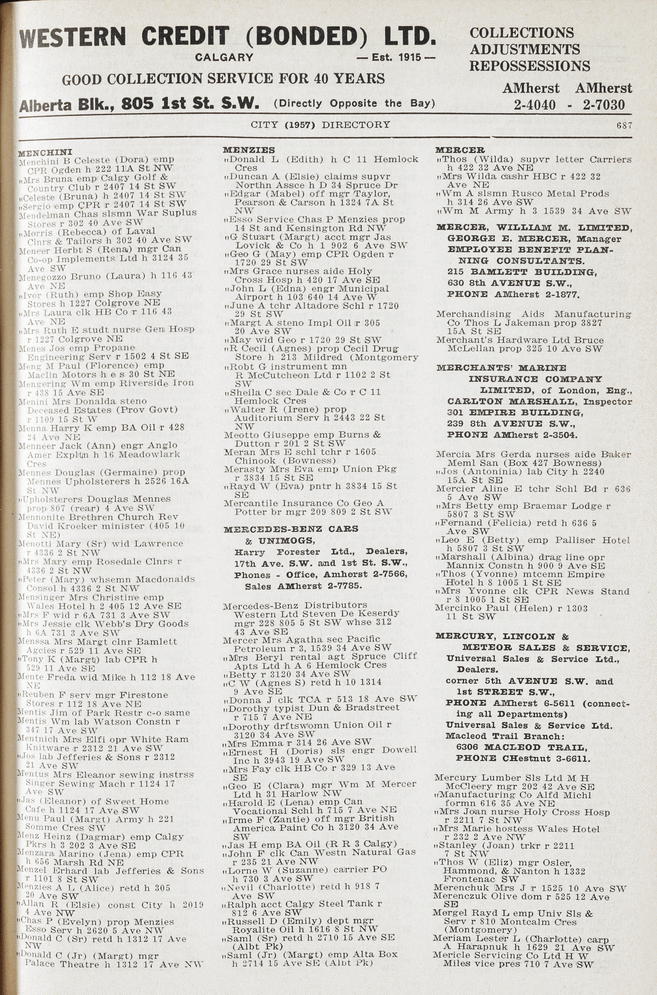 WESTERN CREDIT (BONDED) LTD.
CALGARY — Est. 1915 —
GOOD COLLECTION SERVICE FOR 40 YEARS
Alberta Blk., 805 1st St. S.W. (Directly Opposite the Bay)
COLLECTIONS
ADJUSTMENTS
REPOSSESSIONS
AMherst AMherst
2-4040 - 2-7030
CITY (1957) DIRECTORY 687
MENCHINI
Menchini B Celeste (Dora) emp
CPR Ogden h 222 11A St NW
"Mrs Bruna emp Calgy Golf &
Country Club r 2407 14 St SW
"Celeste (Bruna) h 2407 14 St SW
"Sergio emp CPR r 2407 14 St SW
Mendelman Chas slsmn War Suplus
Stores r 302 40 Ave SW
"Morris (Rebecca) of Laval
Clnrs & Tailors h 302 40 Ave SW
Meneer Herbt S (Rena) mgr Can
Co-op Implements Ltd h 3124 35
Ave SW
Menegozzo Bruno (Laura) h 116 43
Ave NE
"Ivor (Ruth) emp Shop Easy
Stores h 1227 Colgrove NE
"Mrs Laura clk HB Co r 116 43
Ave NE
"Mrs Ruth E studt nurse Gen Hosp
r 1227 Colgrove NE
Menes Jos emp Propane
Engineering Serv r 1502 4 St SE
Meng M Paul (Florence) emp
Maclin Motors h e s 30 St NE
Mengering Wm emp Riverside Iron
r 438 15 Ave SE
Menini Mrs Donalda steno
Deceased Estates (Prov Govt)
r 1109 15 St W
Menna Harry K emp BA Oil r 428
24 Ave NE
Menneer Jack (Ann) engr Anglo
Amer Expltn h 16 Meadowlark
Cres
Mennes Douglas (Germaine) prop
Mennes Upholsterers h 2526 16A
St NW
"Upholsterers Douglas Mennes
prop 807 (rear) 4 Ave SW
Mennonite Brethren Church Rev
David Kroeker minister (405 10
St NE)
Menotti Mary (Sr) wid Lawrence
r 4336 2 St NW
"Mrs Mary emp Rosedale Clnrs r
4336 2 St NW
"Peter (Mary) whsemn Macdonalds
Consol h 4336 2 St NW
Mensinger Mrs Christine emp
Wales Hotel h 2 405 12 Ave SE
"Mrs F wid r 6A 731 3 Ave SW
"Mrs Jessie clk Webb's Dry Goods
h 6A 731 3 Ave SW
Menssa Mrs Margt clnr Bamlett
Agcies r 529 11 Ave SE
"Tony K (Margt) lab CPR h
529 11 Ave SE
Mente Freda wid Mike h 112 18 Ave
NE
"Reuben F serv mgr Firestone
Stores r 112 18 Ave NE
Mentis Jim of Park Restr c-o same
Mentis Wm lab Watson Constn r
347 17 Ave SW
Mentnich Mrs Elfi opr White Ram
Knitware r 2312 21 Ave SW
"Jos lab Jefferies & Sons r 2312
21 Ave SW
Mentus Mrs Eleanor sewing instrss
Singer Sewing Mach r 1124 17
Ave SW
"Jas (Eleanor) of Sweet Home
Cafe h 1124 17 Ave SW
Menu Paul (Margt) Army h 221
Somme Cres SW
Menz Heinz (Dagmar) emp Calgy
Pkrs h 3 202 3 Ave SE
Menzara Marino (Jena) emp CPR
h 656 Marsh Rd NE
Menzel Erhard lab Jefferies & Sons
r 1101 8 St SW
Menzies A L (Alice) retd h 305
20 Ave SW
"Allan R (Elsie) const City h 2019
4 Ave NW
"Chas P (Evelyn) prop Menzies
Esso Serv h 2620 5 Ave NW
"Donald C (Sr) retd h 1312 17 Ave
NW
"Donald C (Jr) (Margt) mgr
Palace Theatre h 1312 17 Ave NW
MENZIES
"Donald L (Edith) h C 11 Hemlock
Cres
"Duncan A (Elsie) claims supvr
Northn Assce h D 34 Spruce Dr
"Edgar (Mabel) off mgr Taylor,
Pearson & Carson h 1324 7A St
NW
"Esso Service Chas P Menzies prop
14 St and Kensington Rd NW
"G Stuart (Margt) acct mgr Jas
Lovick & Co h 1 902 6 Ave SW
"Geo G (May) emp CPR Ogden r
1720 29 St SW
"Mrs Grace nurses aide Holy
Cross Hosp h 420 17 Ave SE
"John L (Edna) engr Municipal
Airport h 103 640 14 Ave W
"June A tchr Altadore Schl r 1720
29 St SW
"Margt A steno Impl Oil r 305
20 Ave SW
"May wid Geo r 1720 29 St SW
"R Cecil (Agnes) prop Cecil Drug
Store h 213 Mildred (Montgomery
"Robt G instrument mn
R McCutcheon Ltd r 1102 2 St
SW
"Sheila C sec Dale & Co r C 11
Hemlock Cres
"Walter R (Irene) prop
Auditorium Serv h 2443 22 St
NW
Meotto Giuseppe emp Burns &
Dutton r 201 2 St SW
Meran Mrs E schl tchr r 1605
Chinook (Bowness)
Merasty Mrs Eva emp Union Pkg
r 3834 15 St SE
"Rayd W (Eva) pntr h 3834 15 St
SE
Mercantile Insurance Co Geo A
Potter br mgr 209 809 2 St SW
MERCEDES-BENZ CARS
& UNIMOGS,
Harry Forester Ltd., Dealers,
17th Ave. S.W. and 1st St. S.W.,
Phones - Office, Amherst 2-7566,
Sales AMherst 2-7785.
Mercedes-Benz Distributors
Western Ltd Steven De Keserdy
mgr 228 805 5 St SW whse 312
43 Ave SE
Mercer Mrs Agatha sec Pacific
Petroleum r 3, 1539 34 Ave SW
"Mrs Beryl rental agt Spruce Cliff
Apts Ltd h A 6 Hemlock Cres
"Betty r 3120 34 Ave SW
"C W (Agnes S) retd h 10 1314
9 Ave SE
"Donna J clk TCA r 513 18 Ave SW
"Dorothy typist Dun & Bradstreet
r 715 7 Ave NE
"Dorothy drftswomn Union Oil r
3120 34 Ave SW
"Mrs Emma r 314 26 Ave SW
"Ernest H (Doris) sls engr Dowell
Inc h 3943 19 Ave SW
"Mrs Fay clk HB Co r 329 13 Ave
SE
"Geo E (Clara) mgr Wm M Mercer
Ltd h 31 Harlow NW
"Harold E (Lena) emp Can
Vocational Schl h 715 7 Ave NE
"Irme F (Zantie) off mgr British
America Paint Co h 3120 34 Ave
SW
"Jas H emp BA Oil (R R 3 Calgy)
"John F clk Can Westn Natural Gas
r 235 21 Ave NW
"Lorne W (Suzanne) carrier PO
h 730 3 Ave SW
"Nevil (Charlotte) retd h 918 7
Ave SW
"Ralph acct Calgy Steel Tank r
812 6 Ave SW
"Russell D (Emily) dept mgr
Royalite Oil h 1616 8 St NW
"Saml (Sr) retd h 2710 15 Ave SE
(Albt Pk)
"Saml (Jr) (Margt) emp Alta Box
h 2714 15 Ave SE (Albt Pk)
MERCER
"Thos (Wilda) supvr letter Carriers
h 422 32 Ave NE
"Mrs Wilda cashr HBC r 422 32
Ave NE
"Wm A slsmn Rusco Metal Prods
h 314 26 Ave SW
"Wm M Army h 3 1539 34 Ave SW
MERCER, WILLIAM M. LIMITED,
GEORGE E. MERCER, Manager
EMPLOYEE BENEFIT PLAN-
NING CONSULTANTS.
215 BAMLETT BUILDING,
630 8th AVENUE S.W.,
PHONE AMherst 2-1877.
Merchandising Aids Manufacturing
Co Thos L Jakeman prop 3827
15A St SE
Merchant's Hardware Ltd Bruce
McLellan prop 325 10 Ave SW
MERCHANTS' MARINE
INSURANCE COMPANY
LIMITED, of London, Eng.,
CARLTON MARSHALL, Inspector
301 EMPIRE BUILDING,
239 8th AVENUE S.W.,
PHONE AMherst 2-3504.
Mercia Mrs Gerda nurses aide Baker
Meml San (Box 427 Bowness)
"Jos (Antoninia) lab City h 2240
15A St SE
Mercier Aline E tchr Schl Bd r 636
5 Ave SW
"Mrs Betty emp Braemar Lodge r
5807 3 St SW
"Fernand (Felicia) retd h 636 5
Ave SW
"Leo E (Betty) emp Palliser Hotel
h 5807 3 St SW
"Marshall (Albina) drag line opr
Mannix Constn h 900 9 Ave SE
"Thos (Yvonne) mtcemn Empire
Hotel h 8 1005 1 St SE
"Mrs Yvonne clk CPR News Stand
r 8 1005 1 St SE
Mercinko Paul (Helen) r 1303
11 St SW
MERCURY, LINCOLN &
METEOR SALES & SERVICE,
Universal Sales & Service Ltd.,
Dealers.
corner 5th AVENUE S.W. and
1st STREET S.W.,
PHONE AMherst 6-5611 (connect-
ing all Departments)
Universal Sales & Service Ltd.
Macleod Trail Branch:
6306 MACLEOD TRAIL,
PHONE CHestnut 3-6611.
Mercury Lumber Sls Ltd M H
McCleery mgr 202 42 Ave SE
"Manufacturing Co Alfd Michl
formn 616 35 Ave NE
"Mrs Joan nurse Holy Cross Hosp
r 2211 7 St NW
"Mrs Marie hostess Wales Hotel
r 232 2 Ave NW
"Stanley (Joan) trkr r 2211
7 St NW
"Thos W (Eliz) mgr Osler,
Hammond, & Nanton h 1332
Frontenac SW
Merenchuk Mrs J r 1525 10 Ave SW
Merenczuk Olive dom r 525 12 Ave
SE
Mergel Rayd L emp Univ Sls &
Serv r 810 Montcalm Cres
(Montgomery)
Meriam Lester L (Charlotte) carp
A Harapnuk h 1629 21 Ave SW
Mericle Servicing Co Ltd H W
Miles vice pres 710 7 Ave SW